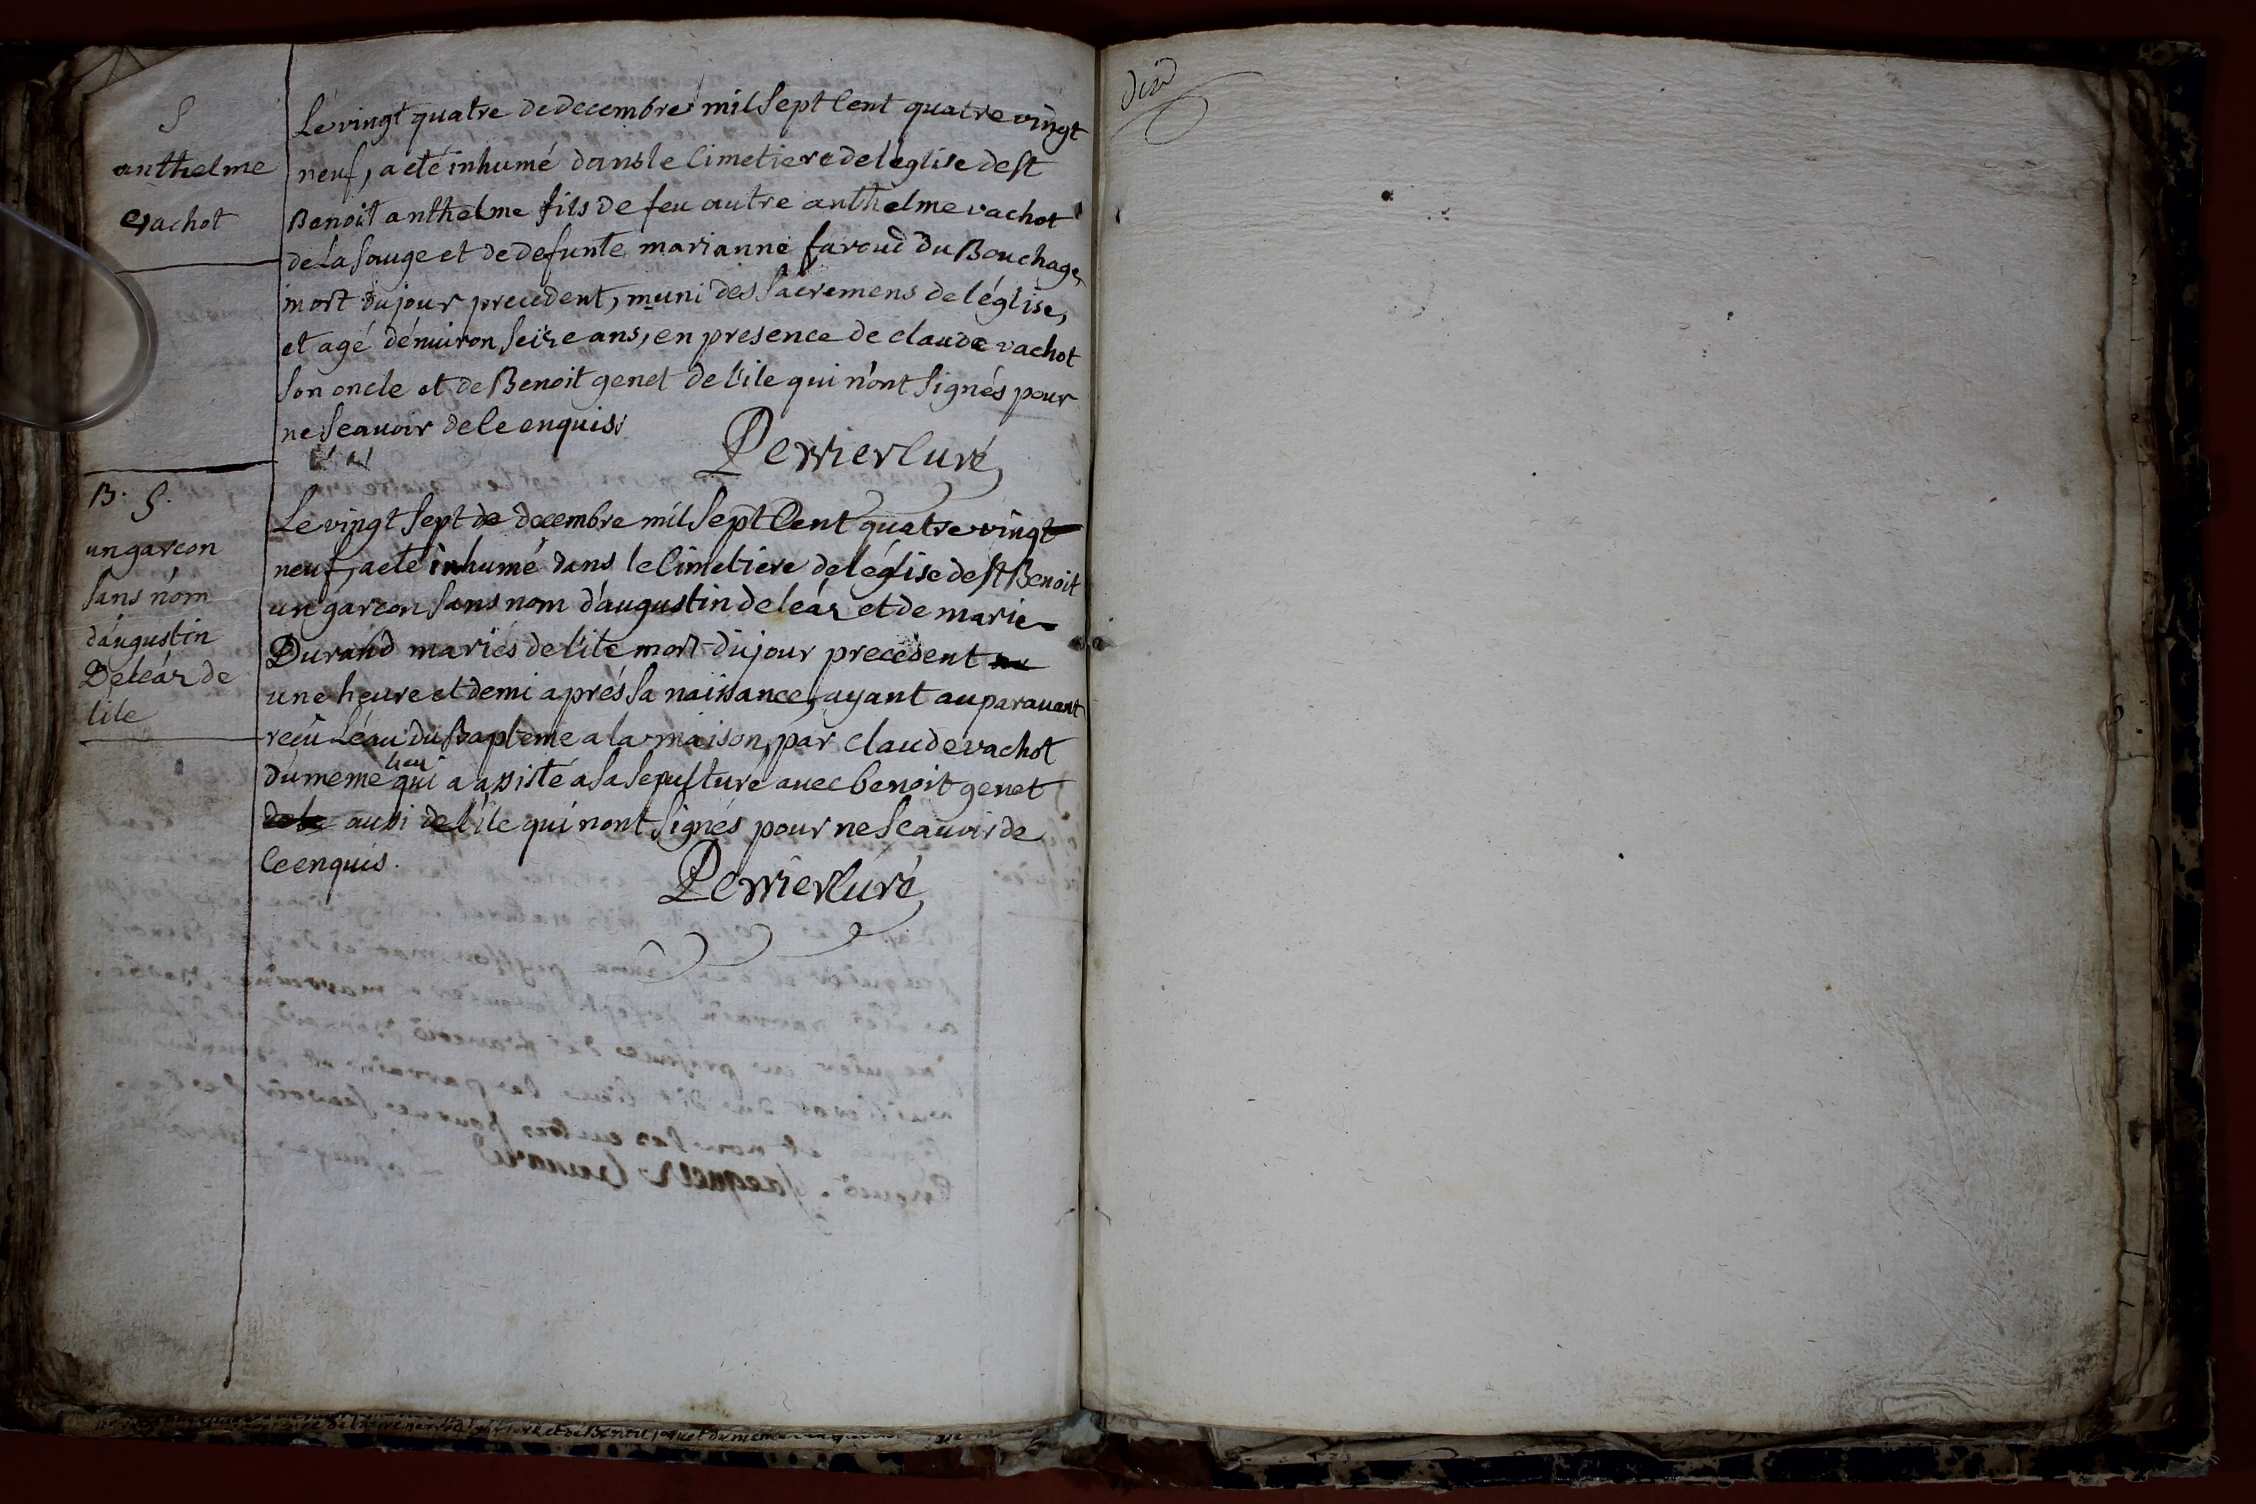 S
anthelme
vachot
Le vingt quatre de decembre mil sept cent quatre vingt
neuf, a eté inhumé dans le cimetiere de léglise de st
Benoit anthelme fils de feu autre anthelme vachot
de la sauge et de defunte marianne faroud du Bouchage,
mort du jour precedent, muni des sacremens de léglise,
et agé dénuiron seize ans, en presence de claude vachot
son oncle et de Benoit genet de l'ile qui n'ont signés pour
ne sçauoir de ce enquis.
Perrier Curé
B. S.
un garcon
sans nóm
d'augustin
Deléaz de
l'ile
Le vingt sept de decembre mil sept cent quatre vingt
neuf, a eté inhumé dans le cimetiere de léglise de st Benoit
un garcon sans nom d'augustin deléaz et de marie
Durand mariés de l'ile mort du jour precedent
une heure et demi aprés sa naissance, ayant auparauant
reçu léau du Bapteme a la maison, par claude vachot
du meme lieu qui a assisté a sa sepulture auec benoit genet
aussi de l'ile qui n'ont signés pour ne sçauoir de
ce enquis.
Perrier Curé